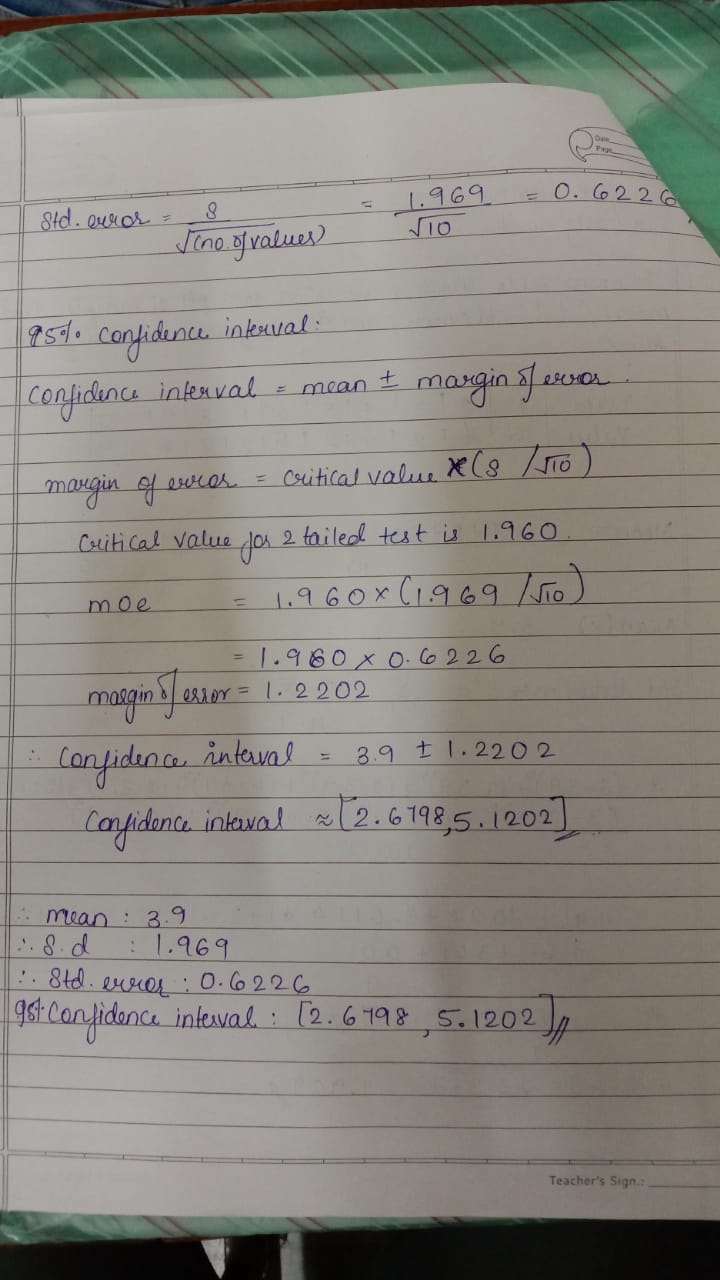 Date
Page
Std. error = s / √(no. of values) = 1.969 / √10 = 0.6226
95% Confidence interval:
Confidence interval = mean ± margin of error.
margin of error = Critical value × (s /√10)
Critical value for 2 tailed test is 1.960.
moe = 1.960 × (1.969 /√10)
= 1.960 × 0.6226
margin of error = 1.2202
∴ Confidence interval = 3.9 ± 1.2202
Confidence interval ≈ [2.6798, 5.1202]
∴ mean : 3.9
∴ S.d : 1.969
∴ Std. error : 0.6226
95% Confidence interval : [2.6798, 5.1202]
Teacher's Sign.: